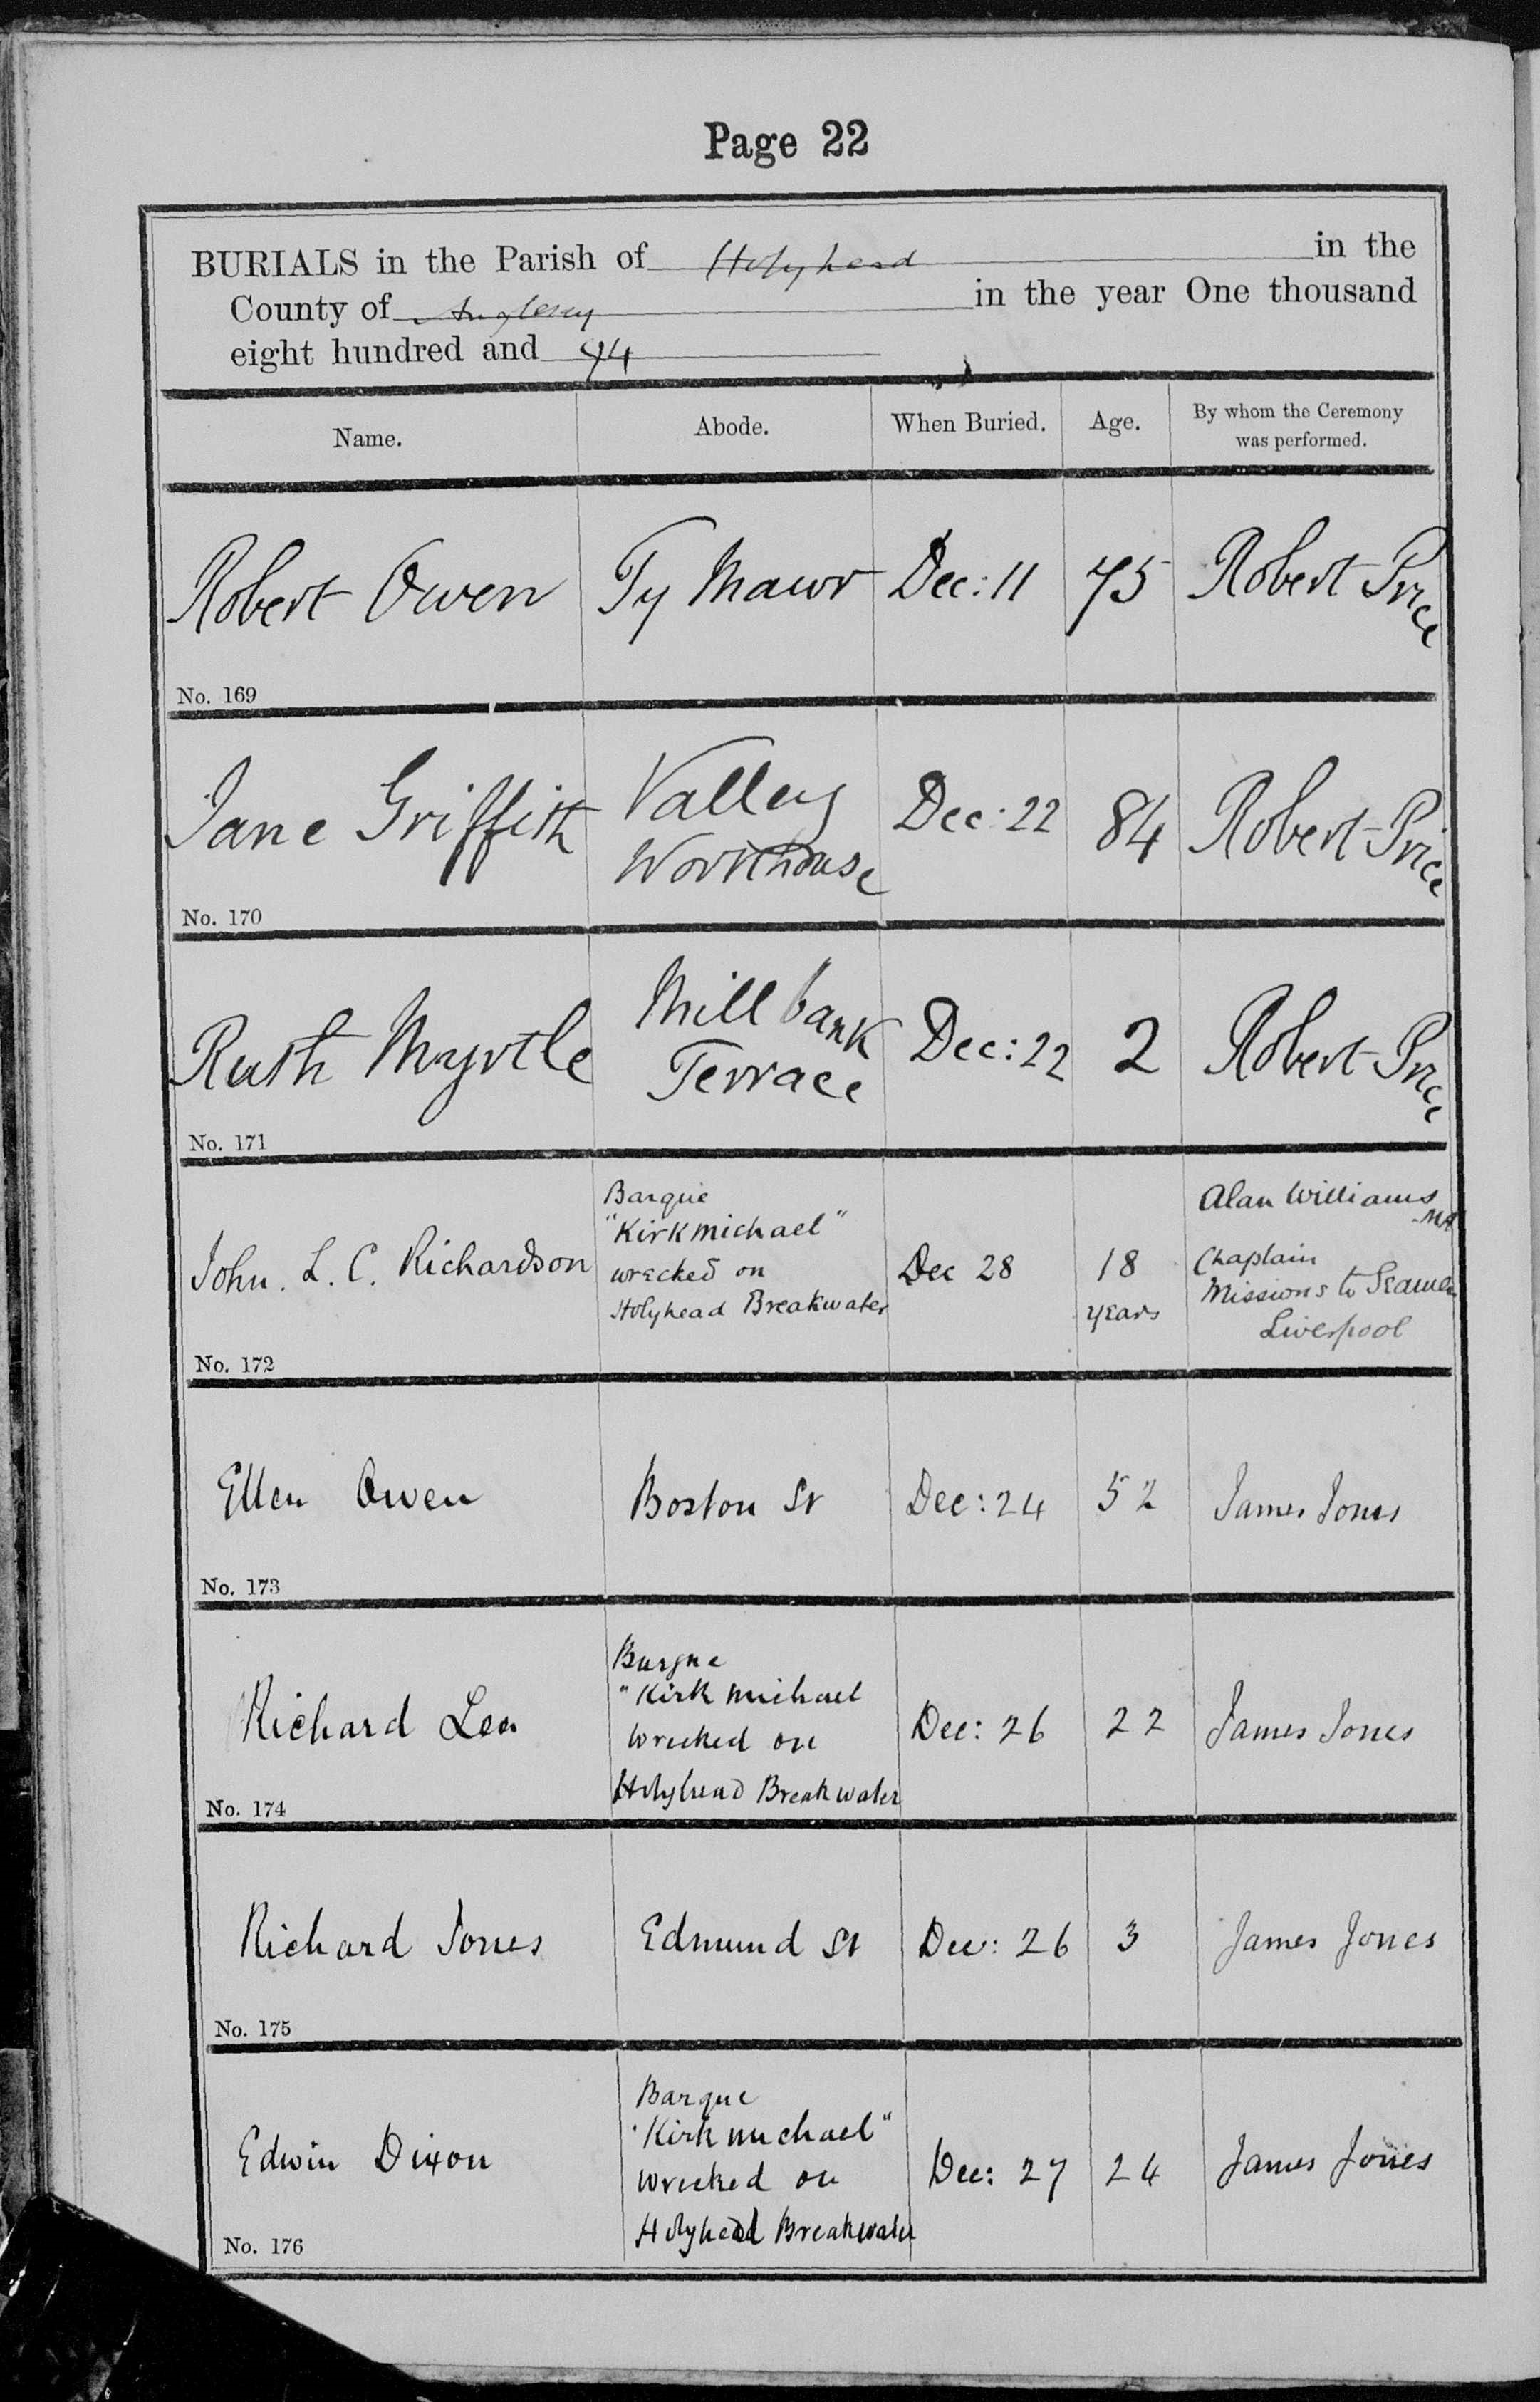 Page 22
BURIALS in the Parish of Holyhead in the
County of Anglesey in the year One thousand
eight hundred and 94
Name. Abode. When Buried. Age. By whom the Ceremony
was performed.
Robert Owen Ty Mawr Dec: 11 75 Robert Price
No. 169
Jane Griffith Valley Dec: 22 84 Robert Price
Workhouse
No. 170
Ruth Myrtle Millbank Dec: 22 2 Robert Price
Terrace
No. 171
Barque Alan Williams MA
"Kirkmichael"
John. L. C. Richardson wrecked on Dec 28 18 Chaplain
Holyhead Breakwater years Missions to Seamen
Liverpool
No. 172
Ellen Owen Boston St Dec: 24 52 James Jones
No. 173
Barque
"Kirkmichael
Richard Lea wrecked on Dec: 26 22 James Jones
Holyhead Breakwater
No. 174
Richard Jones Edmund St Dec: 26 3 James Jones
No. 175
Barque
"Kirkmichael"
Edwin Dixon wrecked on Dec: 27 24 James Jones
Holyhead Breakwater
No. 176